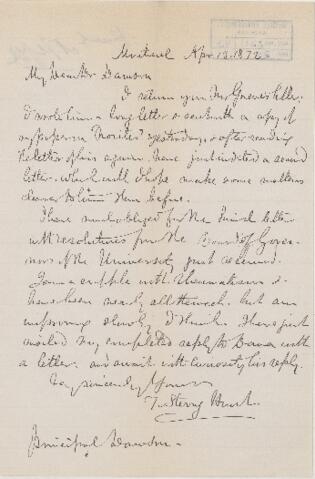 Montreal Apr 13. 1872
My Dear Dr Dawson
I return you Mr Groves letter.
I wrote him a long letter & sent with a copy of
my paper on yesterday, & after reading
letter of his again have just indited a second
letter which will I hope make some matters
clearer to him than before.
I am much obliged for the kind letter
with resolutions from the Board of Gover-
nors of the University just received.
I am a cripple with rheumatism &
have been nearly all the week, but am
improving slowly I think. I have just
mailed my completed reply to Dana with
a letter, and await with curiosity his reply.
Very sincerely Yours
T. Sterry Hunt
Principal Dawson.